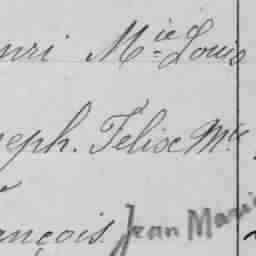 nri Mie Louis
seph. Felix Mie
ançois Jean Marie